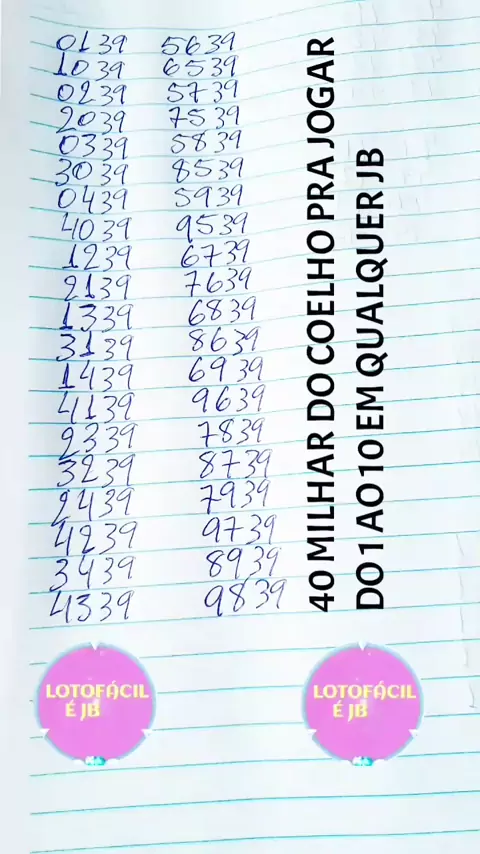 0139 5639
1039 6539
0239 5739
2039 7539
0339 5839
3039 8539
0439 5939
4039 9539
1239 6739
2139 7639
1339 6839
3139 8639
1439 6939
4139 9639
2339 7839
3239 8739
2439 7939
4239 9739
3439 8939
4339 9839
40 MILHAR DO COELHO PRA JOGAR
DO 1 AO 10 EM QUALQUER JB
LOTOFÁCIL
É JB
LOTOFÁCIL
É JB